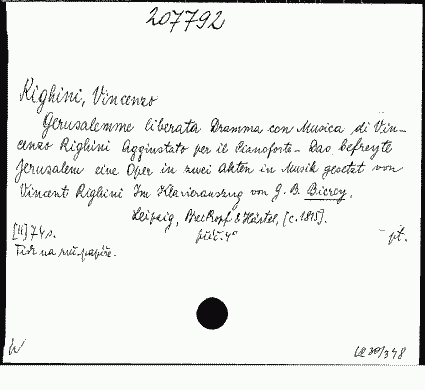 207792
Righini, Vincenzo
Gerusalemme liberata Dramma con Musica di Vin-
cenzo Righini Aggiustato per il Pianoforte - Das befreyte
Jerusalem eine Oper in zwei Akten in Musik gesetzt von
Vincent Righini Im Klavierauszug von G. B. Bierey.
Leipzig, Breitkopf & Härtel, [c. 1815].
[4] 74 s. 4° - pt.
Tisk na ruč. papíře.